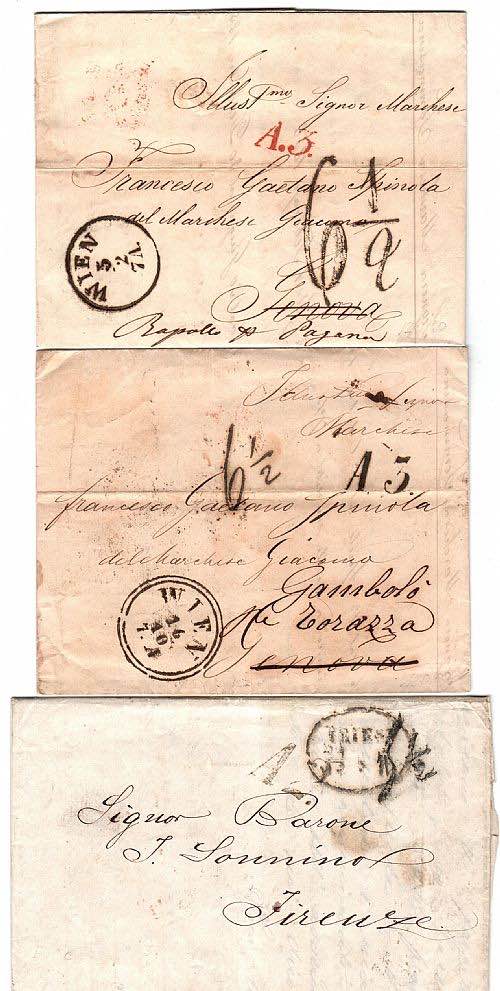 Illust.mo Signor Marchese
A.3.
Francesco Gaetano Spinola
del Marchese Giacomo
6 1/2
WIEN
5/2
7A
Genova
Rapallo Pagana
Marchese
6 1/2
A 3
Francesco Gaetano Spinola
del Marchese Giacomo
Gambolò
Torazza
WIEN
Genova
A.
TRIEST
Signor Barone
S. Sonnino
Firenze